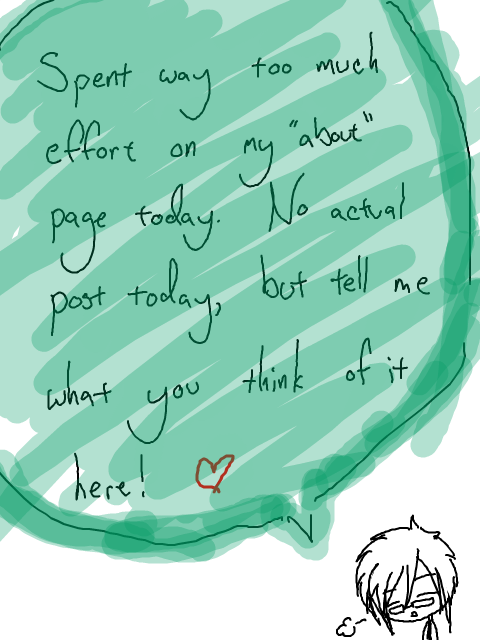 Spent way too much
effort on my "about"
page today. No actual
post today, but tell me
what you think of it
here!